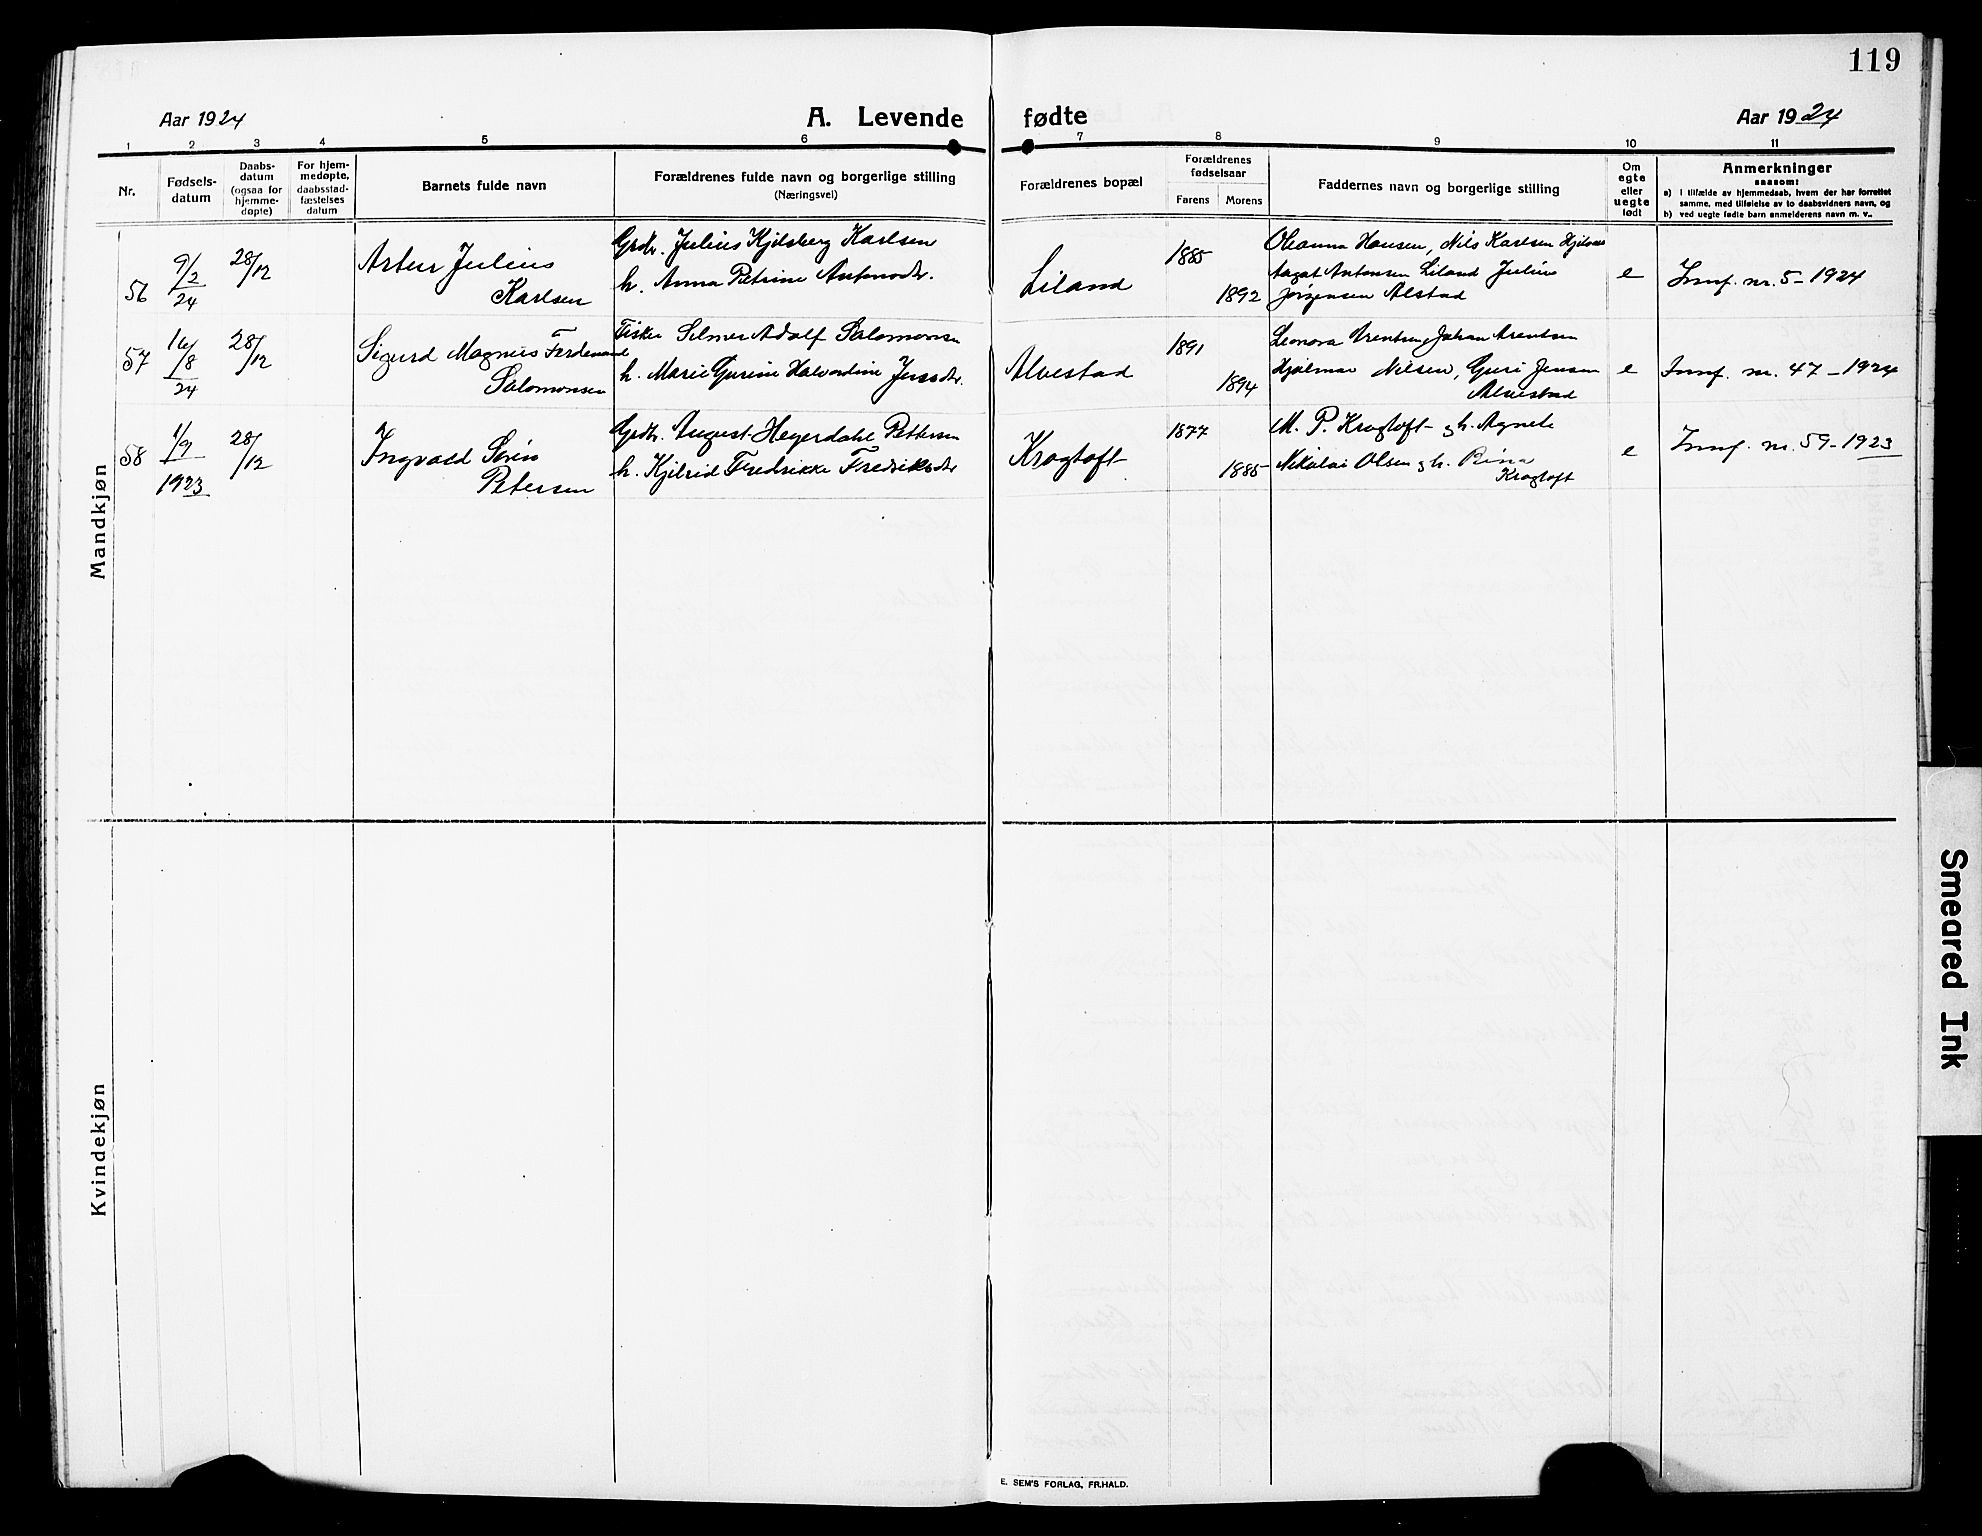 119
Aar 1924
A. Levende fødte
Aar 1924
1 2 3 4 5 6 7 8 9 10 11
Nr.
Fødsels-
datum
Daabs-
datum
(ogsaa for
hjemme-
døpte)
For hjem-
medøpte,
daabsstad-
fæstelses
datum
Barnets fulde navn
Forældrenes fulde navn og borgerlige stilling
(Næringsvei)
Forældrenes bopæl
Forældrenes
fødselsaar
Farens Morens
Faddernes navn og borgerlige stilling
Om
egte
eller
uegte
født
Anmerkninger
saasom:
a) i tilfælde av hjemmedaab, hvem der har forrettet
samme, med tilføielse av to daabsvidners navn, og
b) ved uegte fødte barn anmelderens navn m. v..
Mandkjøn
56
9/2
24
28/12
Artur Julius
Karlsen
Grdbr. Julius Kjilsberg Karlsen
h. Anna Petrine Antonsdtr.
Liland
1885
1892
Oleanna Hansen, Nils Karlsen
Aagot Antonsen Liland Julius
Jørgensen Alstad
e
Innf. nr. 5-1924
57
16/8
24
28/12
Sigurd Magnus Ferdinand
Salomonsen
Fisker Selmer Adolf Salomonsen
h. Marie Gurine Halvardine Jensdtr.
Alvestad
1891
1894
Leonora Arentsen, Johan Arentsen
Hjalmar Nilsen, Guri Jensen
Alvestad
e
Innf. nr. 47-1924
58
1/9
1923
28/12
Ingvald Sørin
Petersen
Grdbr. August Heyerdahl Pettersen
h. Kjelrid Fredrikke Fredriksdtr
Krogtoft
1877
1885
M. P. Krogtoft og h. Agnete
Nikolai Olsen og h. Rina
Krogtoft
e
Innf. nr. 59-1923
Kvindekjøn
E. SEM'S FORLAG, FR.HALD.
Smeared Ink